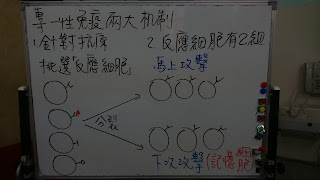 專一性免疫兩大机制
1. 針對抗原
挑選"反應細胞"
2. 反應細胞有2組
馬上攻擊
分裂
下次攻擊(記憶細胞)